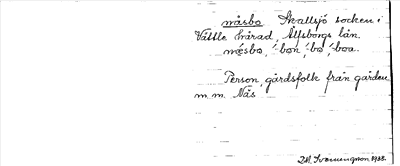 nåsbo Skallsjö socken i
Vättle härad, Älfsborgs län.
nǻsbo, -bon, -bo, -boa.
Person, gårdsfolk från gården
m.m. Nås
D.W. Svenningson 1938.